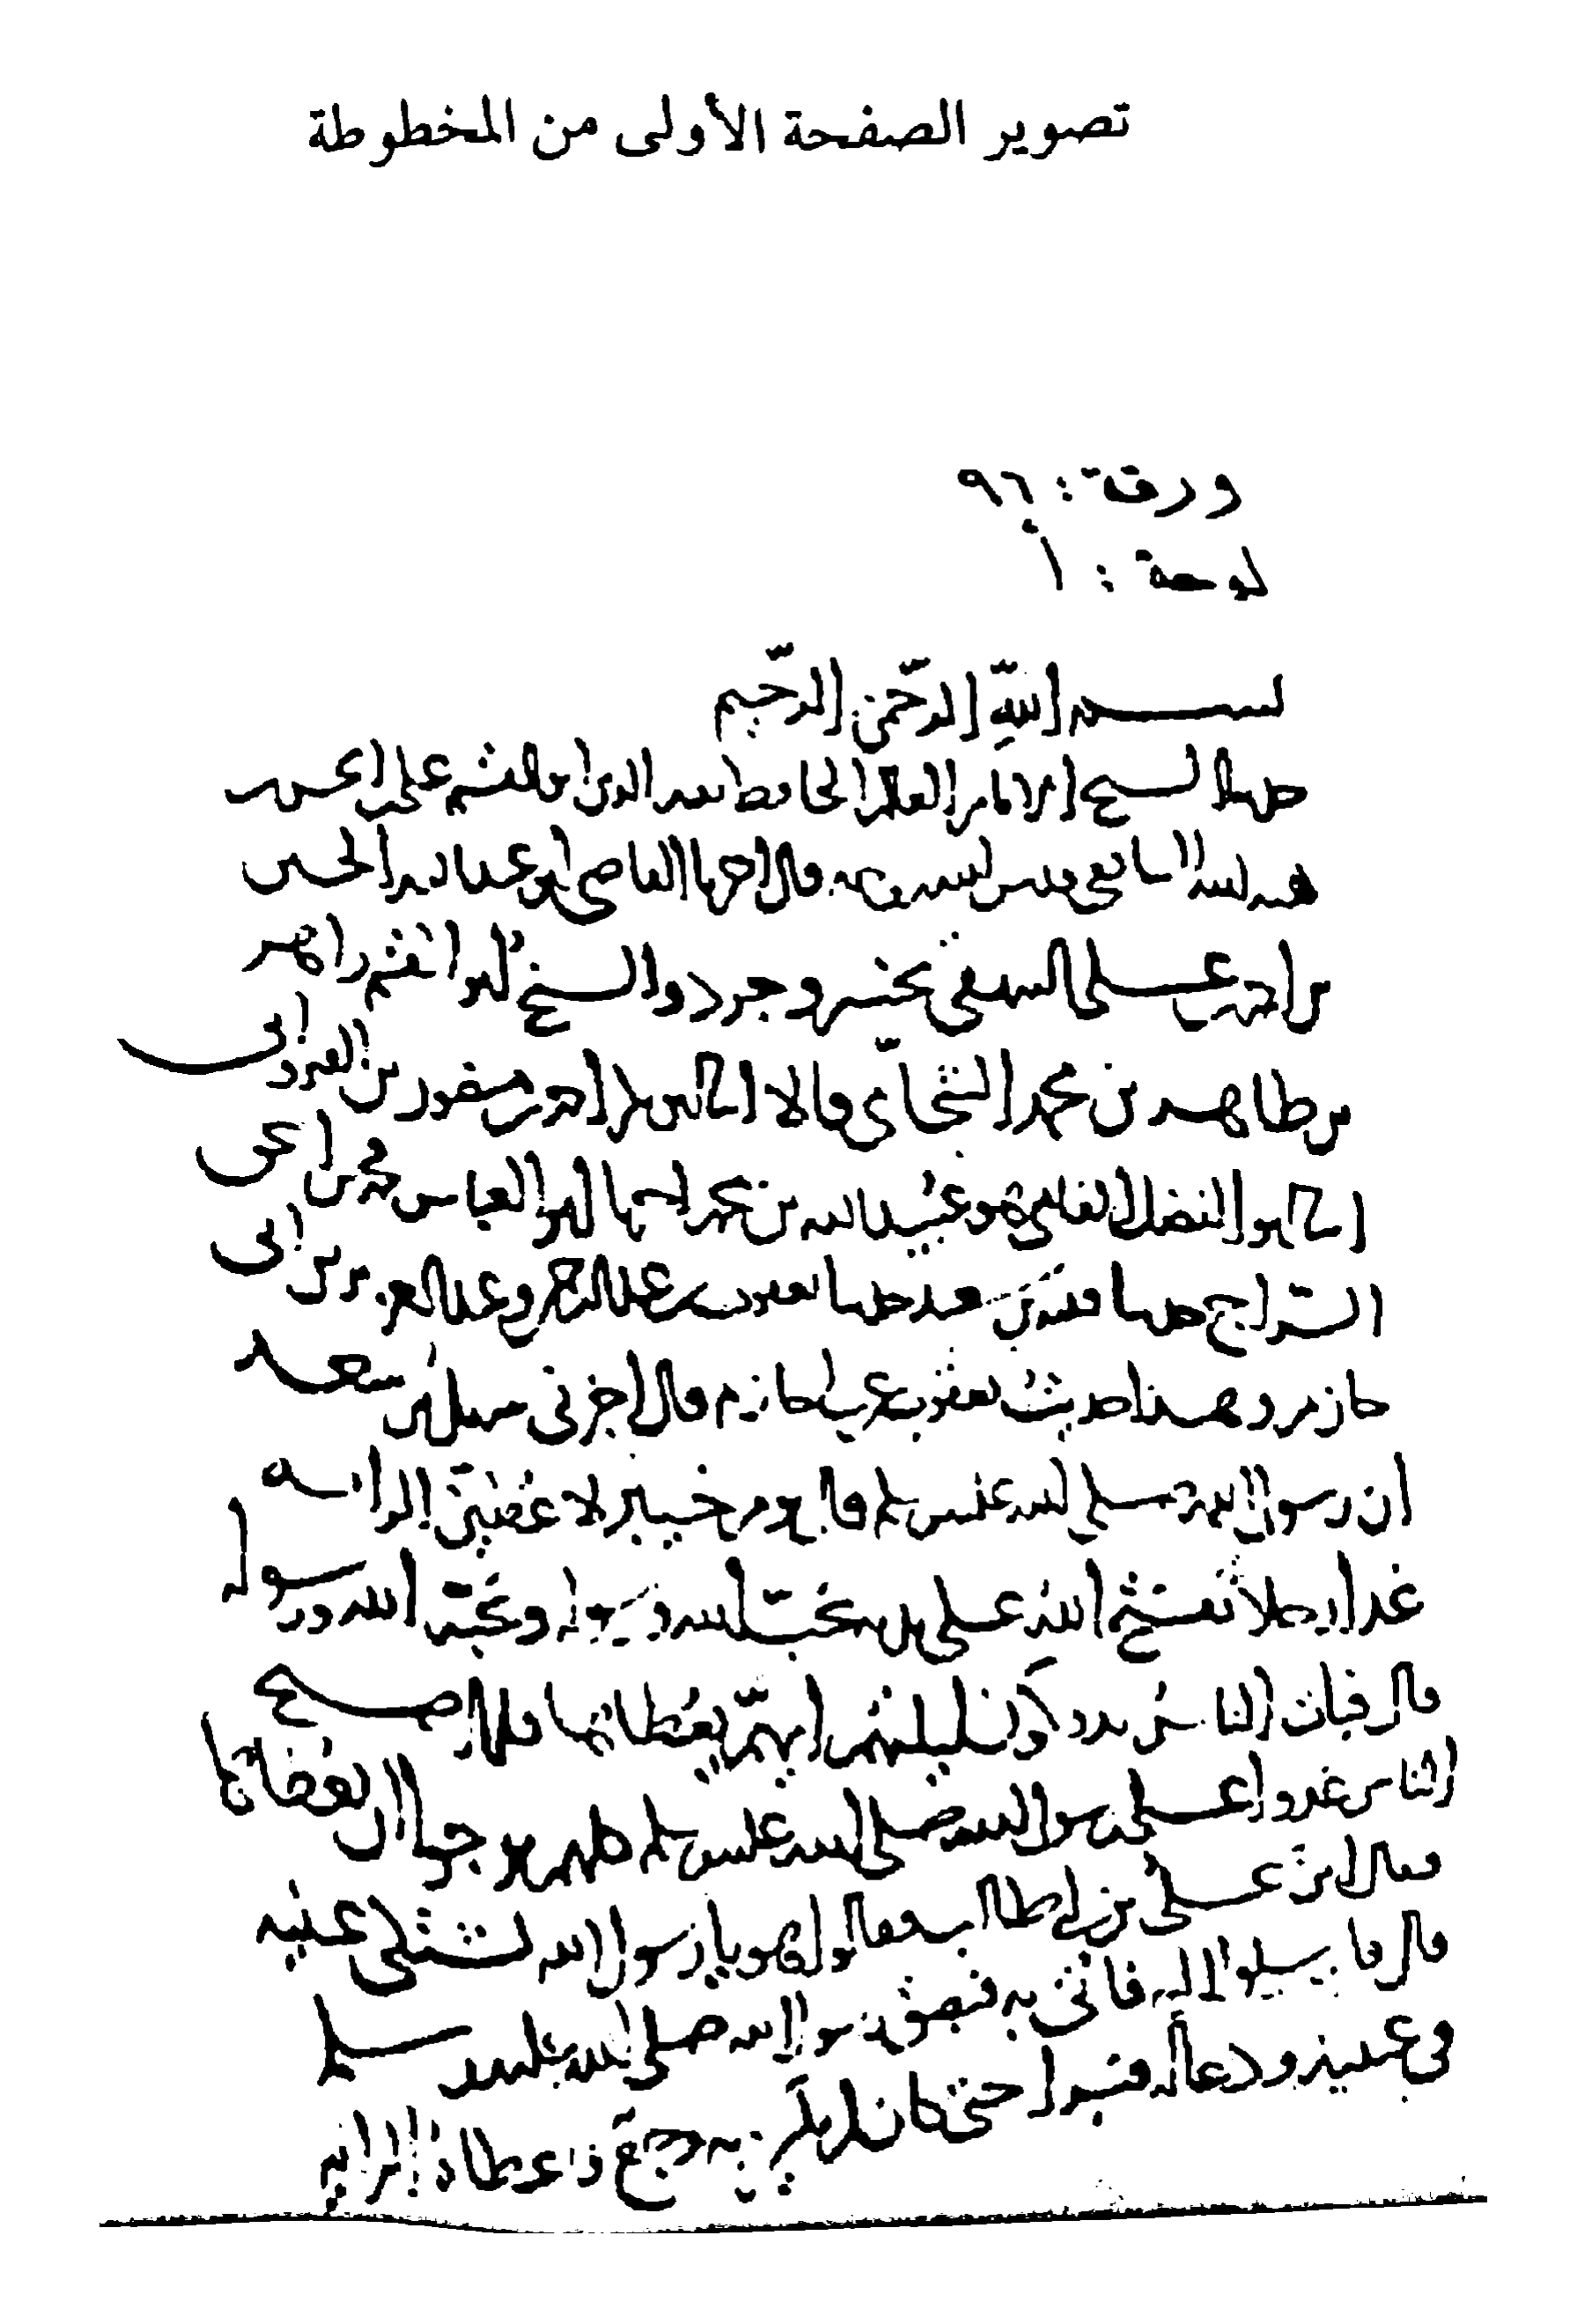 تصوير الصفحة الأولى من المخطوطة
ورقة : ٩٦
لوحة : ١
بسم الله الرحمن الرحيم
حدثنا الشيخ الإمام العالم الحافظ الدين ابو القسم على بن الحسن
هبة الله الشافعي قال اخبرنا القاضي ابو عبد الله الحسين
بن احمد بن على البيهقي بخسروجرد والشيخ ابو القسم زاهر
بن طاهر بن محمد الشحامي قالا انا ابو بكر احمد بن منصور بن
انا ابو الفضل الفامي هو عبيد الله بن محمد ابو العباس محمد بن اسحق
السراج حدثنا قتيبة بن سعيد حدثنا يعقوب بن عبد الرحمن وعبد العزيز بن ابي
حازم وهذا حديث يعقوب عن ابي حازم قال اخبرني سهل بن سعد
ان رسول الله صلى الله عليه وسلم قال يوم خيبر لاعطين الراية
غدا رجلا يفتح الله على يديه يحب الله ورسوله ويحبه الله ورسوله
قال فبات الناس يدوكون ليلتهم ايهم يعطاها فلما اصبح
الناس غدوا على رسول الله صلى الله عليه وسلم كلهم يرجوا ان يعطاها
فقال اين على بن ابي طالب فقالوا هو يا رسول الله يشتكي عينيه
قال فارسلوا اليه فاتى به فبصق رسول الله صلى الله عليه وسلم
في عينيه ودعا له فبرا حتى كان لم يكن به وجع فاعطاه الراية